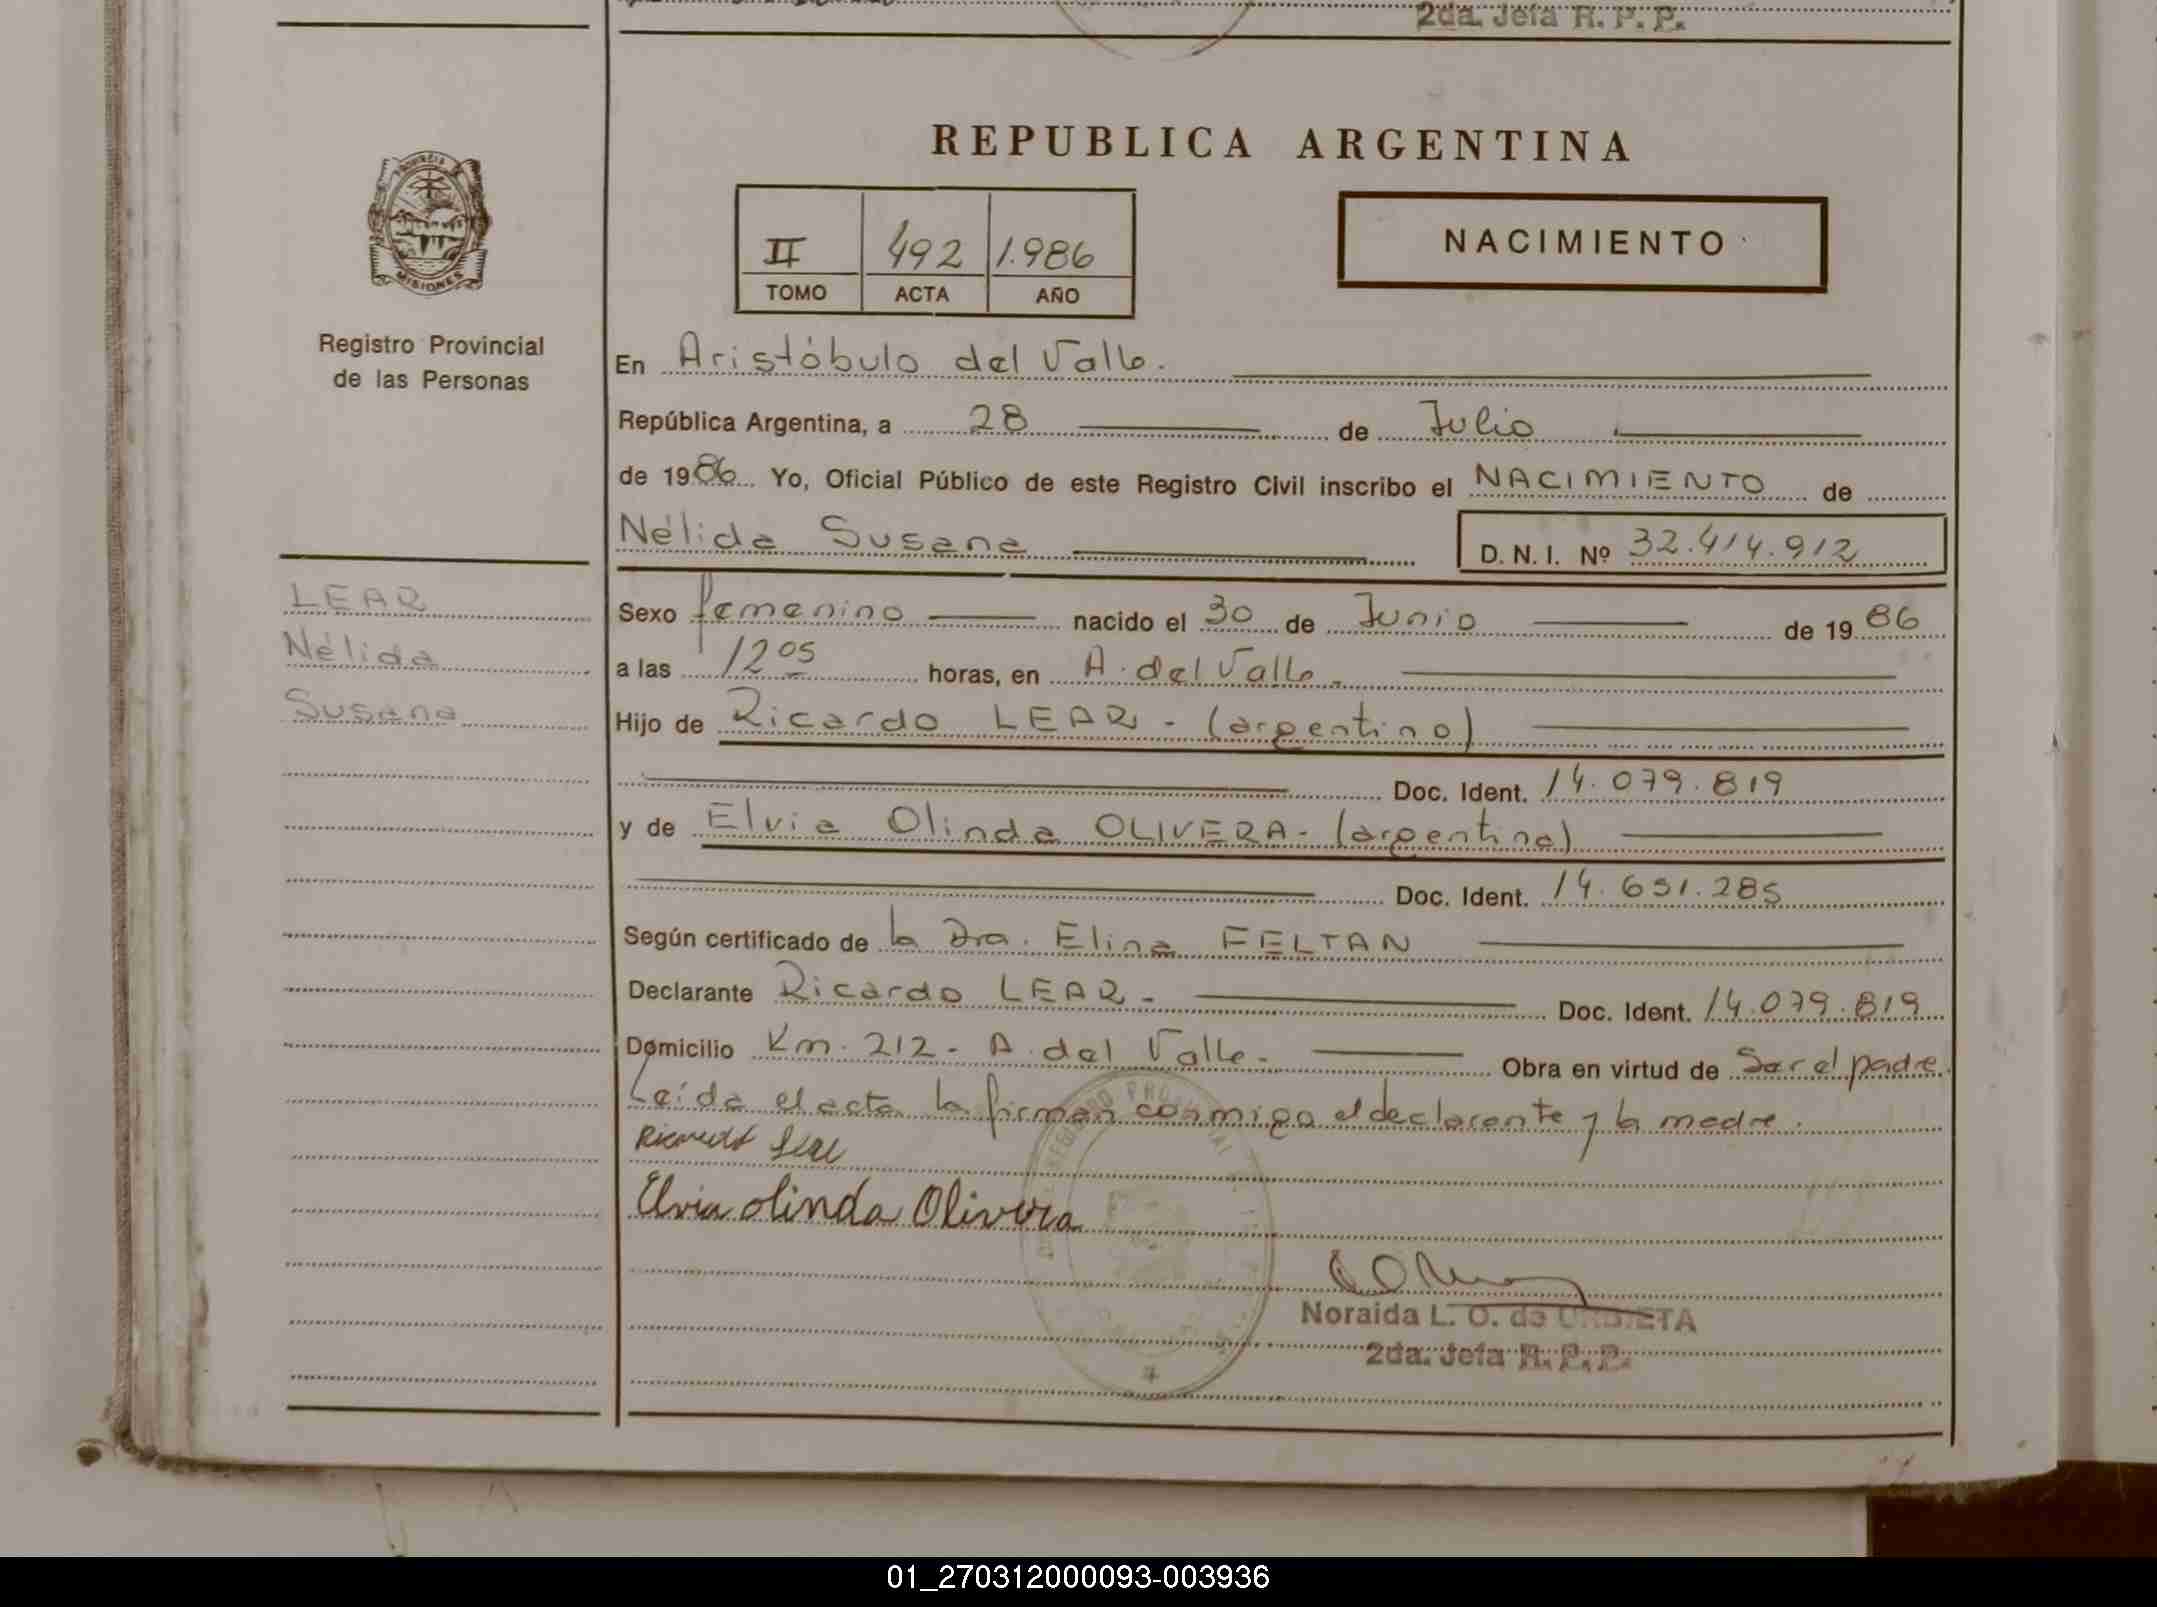 2da. Jefa R. P. P.
REPUBLICA ARGENTINA
PROVINCIA
MISIONES
II 492 1.986
TOMO ACTA AÑO
NACIMIENTO
Registro Provincial
de las Personas
En Aristóbulo del Valle.
República Argentina, a 28 de Julio
de 1986 Yo, Oficial Público de este Registro Civil inscribo el NACIMIENTO de
Nélida Susana D. N. I. Nº 32.414.912
LEAR
Nélida
Susana
Sexo femenino nacido el 30 de Junio de 1986
a las 12 05 horas, en A. del Valle.
Hijo de Ricardo LEAR - (argentino)
Doc. Ident. 14.079.819
y de Elvia Olinda OLIVERA - (argentina)
Doc. Ident. 14.651.285
Según certificado de la Dra. Elina FELTAN
Declarante Ricardo LEAR - Doc. Ident. 14.079.819
Domicilio Km. 212 - A. del Valle - Obra en virtud de Ser el padre.
Leída el acta la firman conmigo el declarante y la madre.
Ricardo Lear
Elvia olinda Olivera
Noraida L. O. de
2da. Jefa R. P. P.
01_270312000093-003936